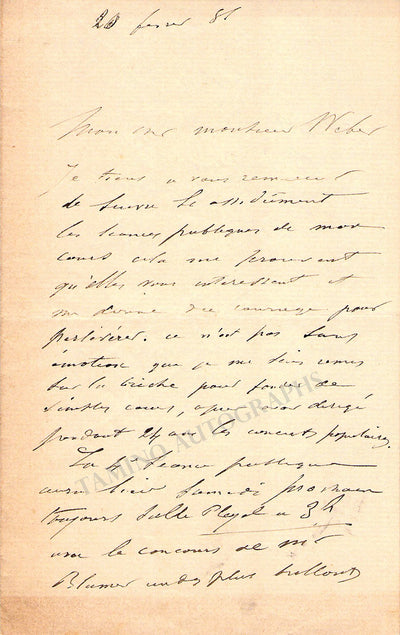 20 fevrier 86
Mon cher monsieur Weber
Je tiens a vous remercier
de suivre si assidûment
les seances publiques de mon
cours cela me prouvant
qu'elles vous interessent et
me donne du courage pour
persévérer. ce n'est pas sans
émotion que je me suis remis
sur la brèche pour fonder de
simples cours, apres avoir dirigé
pendant 24 ans les concerts populaires.
La 5e seance publique
aura lieu Samedi prochain
toujours Salle Pleyel a 3h
avec le concours de mr
Blumer un des plus brillants
TAMINO AUTOGRAPHS